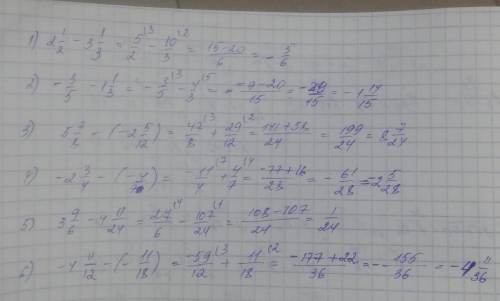 1) 2 1/2 - 3 1/3 = 5/2^(3 - 10/3^(2 = 15-20/6 = - 5/6
2) - 3/5 - 1 1/3 = - 3/5^(3 - 4/3^(5 = -9-20/15 = -29/15 = -1 14/15
3) 5 7/8 - (-2 5/12) = 47/8^(3 + 29/12^(2 = 141+58/24 = 199/24 = 8 7/24
4) -2 3/4 - (- 4/7) = - 11/4^(7 + 4/7^(4 = -77+16/28 = - 61/28 = -2 5/28
5) 3 9/6 - 4 11/24 = 27/6^(4 - 107/24^(1 = 108-107/24 = 1/24
6) -4 11/12 - (- 11/18) = -59/12^(3 + 11/18^(2 = -177+22/36 = - 155/36 = -4 11/36